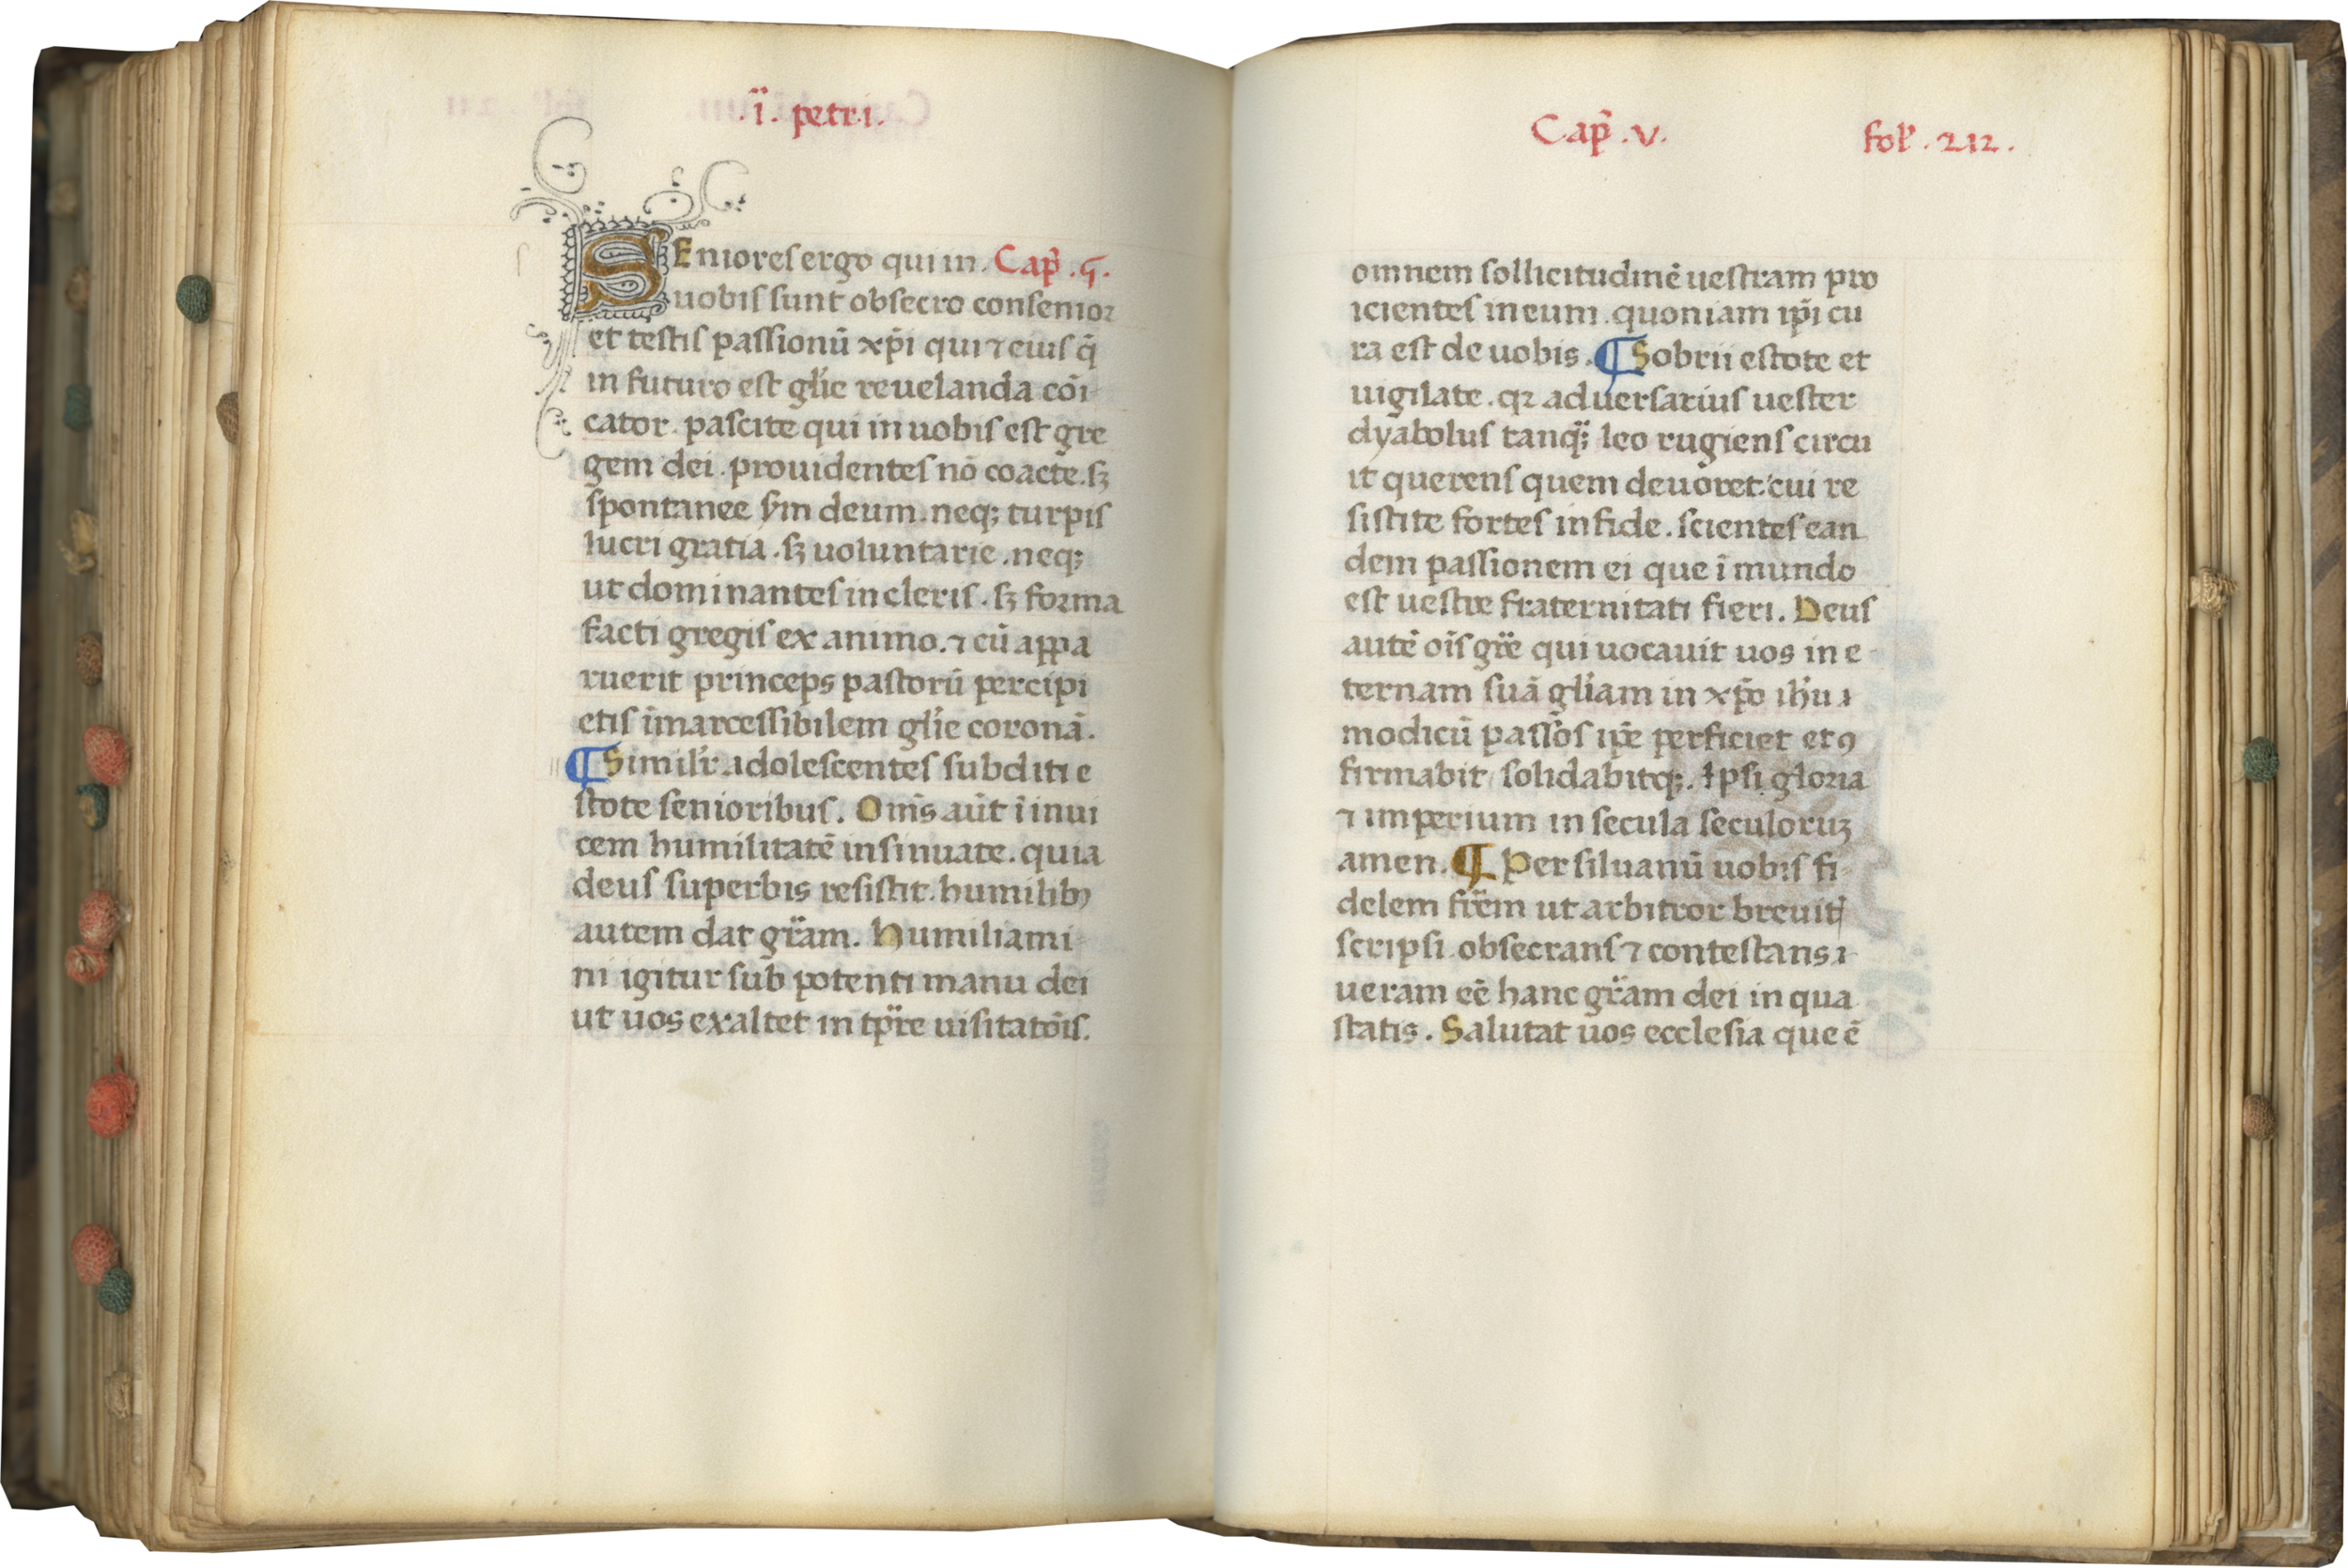 .ï. petri.
SEniores ergo qui in. Cap̃ .ꝯ.
uobis sunt obsecro consenior
et testis passionū xp̄i qui ⁊ eius q̄
in futuro est glīe reuelanda cōi
cator. pascite qui in uobis est gre
gem dei. prouidentes nō coacte. sꝫ
spontanee sm̄ deum. neqꝫ turpis
lucri gratia. sꝫ uoluntarie. neqꝫ
ut dominantes in cleris. sꝫ forma
facti gregis ex animo. ⁊ cū appa
ruerit princeps pastorū percipi
etis īmarcessibilem glīe coronā.
¶Similr̄ adolescentes subditi e
stote senioribus. Om̄s aūt ī inui
cem humilitatē insinuate. quia
deus superbis resistit. humilibꝯ
autem dat gr̄am. Humiliami
ni igitur sub potenti manu dei
ut uos exaltet in tp̄re uisitatōis.
Cap̃ .v. fol̃. 212.
omnem sollicitudinē uestram pro
icientes in eum. quoniam ip̄i cu
ra est de uobis. ¶Sobrii estote et
uigilate. qꝛ aduersarius uester
dyabolus tanqꝫ leo rugiens circu
it querens quem deuoret. cui re
sistite fortes in fide. scientes ean
dem passionem ei que ī mundo
est uestre fraternitati fieri. Deus
autē oīs gr̄e qui uocauit uos in e
ternam suā glīam in xp̄o ihū ⁊
modicū passos ip̄e perficiet et ꝯ
firmabit solidabitqꝫ. Ipsi gloria
⁊ imperium in secula seculoruꝫ
amen. ¶ Per siluanū uobis fi
delem fr̄em ut arbitror breuitꝭ
scripsi obsecrans ⁊ contestans ⁊
ueram eē hanc gr̄am dei in qua
statis. Salutat uos ecclesia que ē